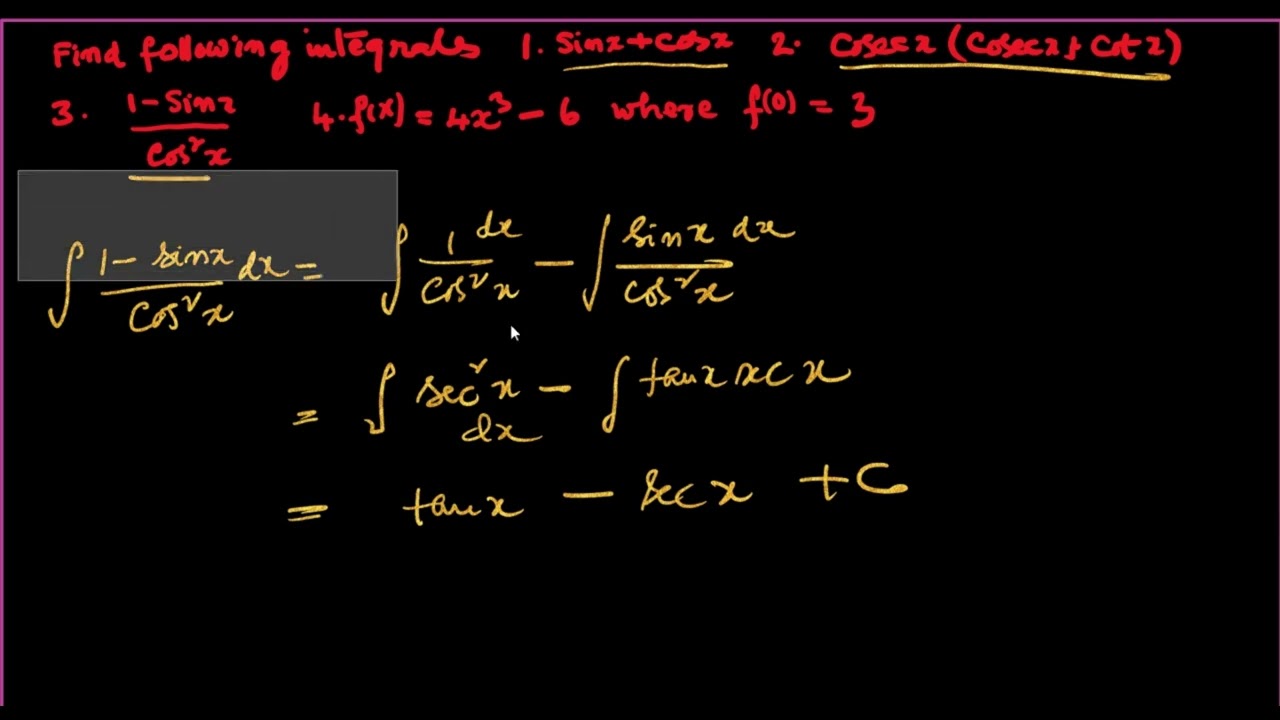 Find following integrals 1. Sinx+Cosx 2. Cosecx (Cosecx+Cotx)
3. (1-Sinx)/(Cos²x) 4. f(x) = 4x³ - 6 where f(0) = 3
∫ (1-sinx)/(Cos²x) dx = ∫ (1 dx)/(Cos²x) - ∫ (sinx dx)/(Cos²x)
= ∫ sec²x dx - ∫ tanx secx
= tanx - secx + C